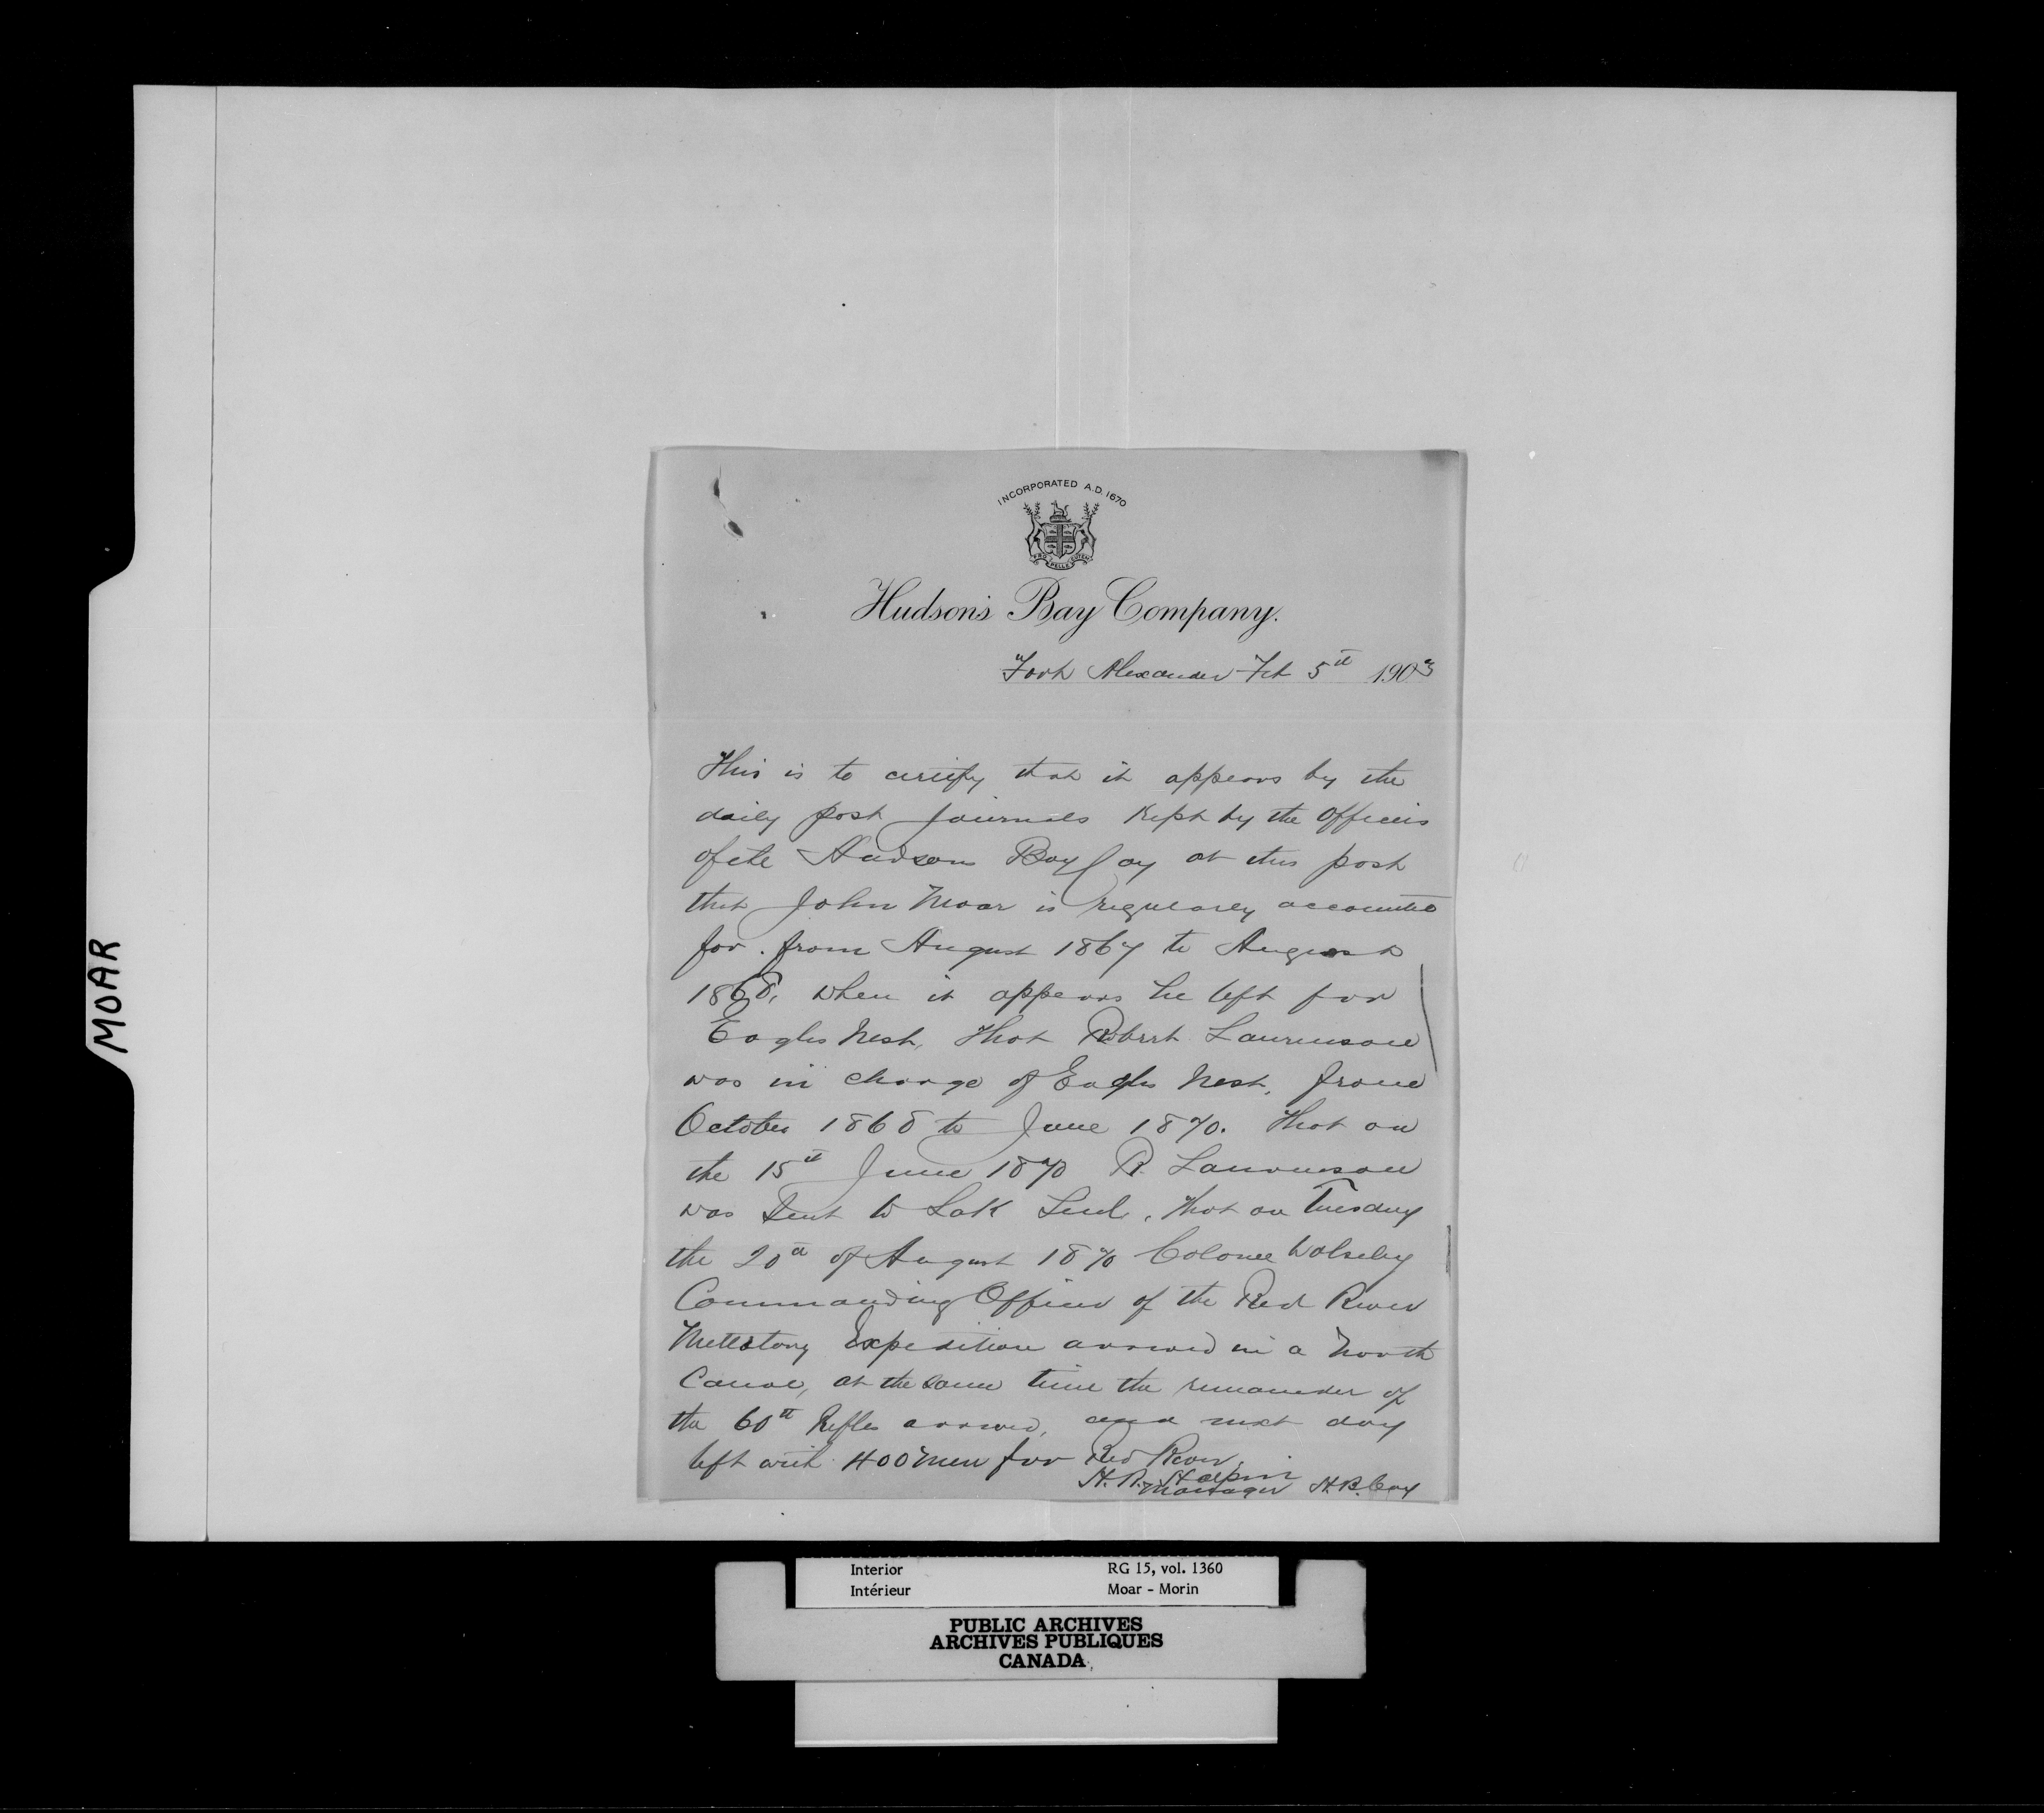 INCORPORATED A.D. 1670
PRO PELLE CUTEM
Hudson's Bay Company.
Fort Alexander Feb 5th 1903
This is to certify that it appears by the
daily post journals kept by the Officers
of the Hudsons Bay Coy at this post
that John Moar is regularly accounted
for. from August 1867 to August
1868, when it appears he left for
Eagles Nest, that Robert Laurenson
was in charge of Eagles Nest, from
October 1868 to June 1870. That on
the 15th June 1870 R. Laurenson
was Sent to Lak Seul, that on Tuesday
the 20th of August 1870 Colonel Wolseley
Commanding Officer of the Red River
Expedition arrived in a North
Canoe, at the same time the remainder of
the 60th Rifles arrived, and next day
left with 400 men for Red River.
H. R. Halpin
Manager H.B. Coy
MOAR
Interior RG 15, vol. 1360
Intérieur Moar - Morin
PUBLIC ARCHIVES
ARCHIVES PUBLIQUES
CANADA